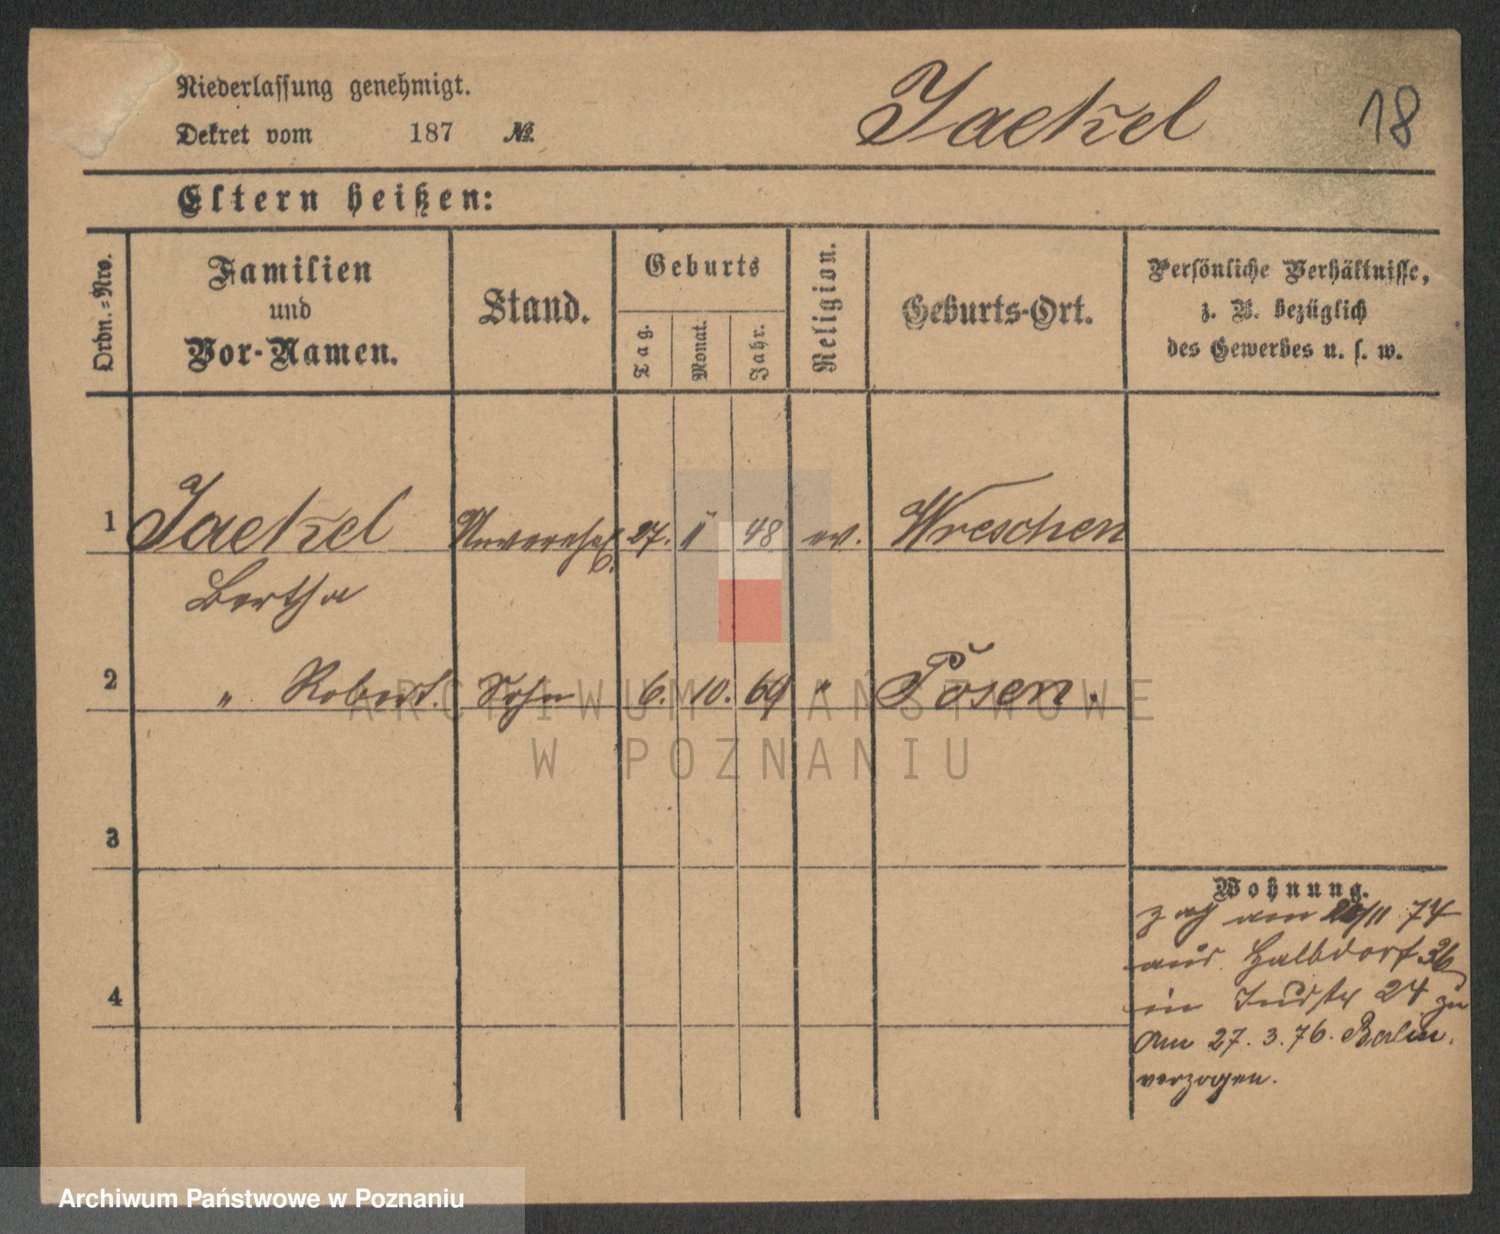 Niederlassung genehmigt.
Dekret vom 187 No.
Jaekel
18
Eltern heißen:
Ordn.=Nro.
Familien
und
Vor-Namen.
Stand.
Geburts
Tag.
Monat.
Jahr.
Religion.
Geburts-Ort.
Persönliche Verhältnisse,
z. B. bezüglich
des Gewerbes u. s. w.
1 Jaekel 27. 48 ev. Wreschen
Bertha
2 " Robert. Sohn 6. 10. 69 " Posen.
ARCHIWUM PAŃSTWOWE
W POZNANIU
3
4
Wohnung.
zog am /11 74
aus Halbdorf 36
in Judstr 24 zu
Am 27. 3. 76. Berlin.
verzogen.
Archiwum Państwowe w Poznaniu